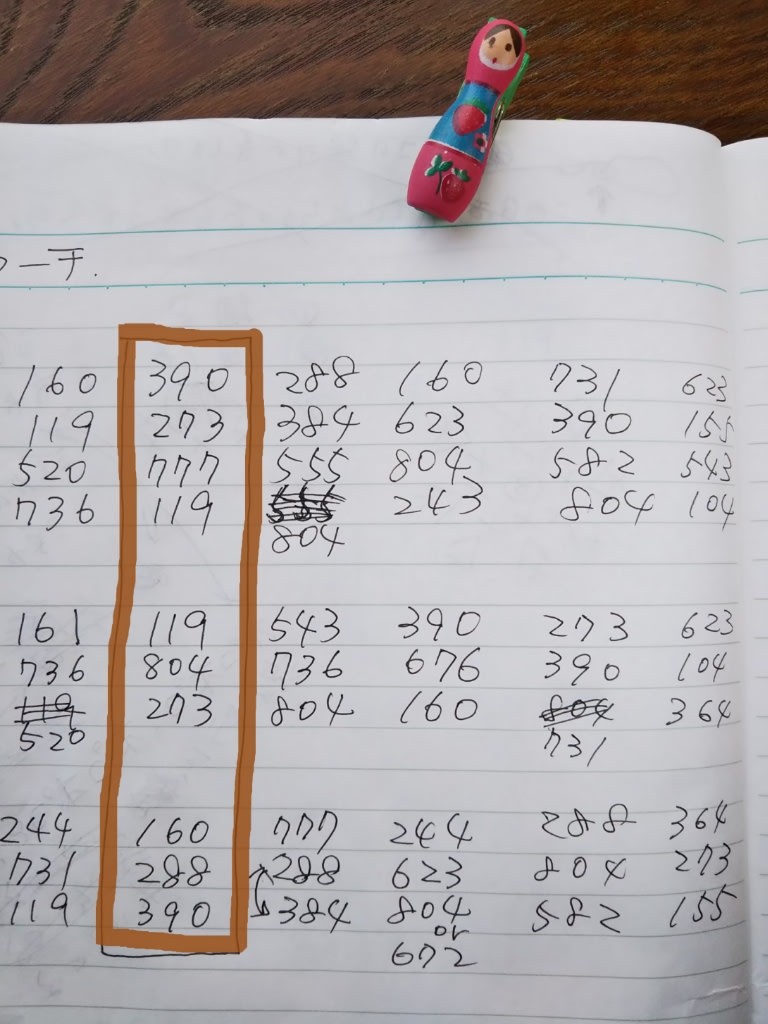 ーチ.
160 390 288 160 731 623
119 273 384 623 390 155
520 777 555 804 582 543
736 119 243 804 104
804
161 119 543 390 273 623
736 804 736 676 390 104
119 273 804 160 804 364
520 731
244 160 777 244 288 364
731 288 288 623 804 273
119 390 384 804 582 155
or
672